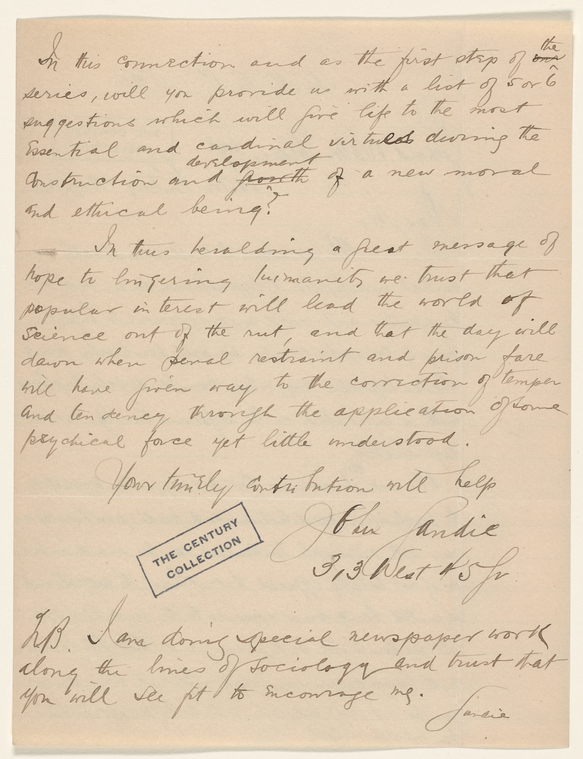 In this connection and as the first step of the
series, will you provide us with a list of 5 or 6
suggestions which will give life to the most
Essential and cardinal virtues during the
Construction and growth development of a new moral
and ethical being?
In thus heralding a great message of
hope to lingering humanity we trust that
popular interest will lead the world of
Science out of the rut, and that the day will
dawn when penal restraint and prison fare
will have given way to the correction of temper
and tendency through the application of some
psychical force yet little understood.
Your timely contribution will help
John
313 West 45
THE CENTURY
COLLECTION
I am doing special newspaper work
along the lines of Sociology and trust that
you will see fit to encourage me.